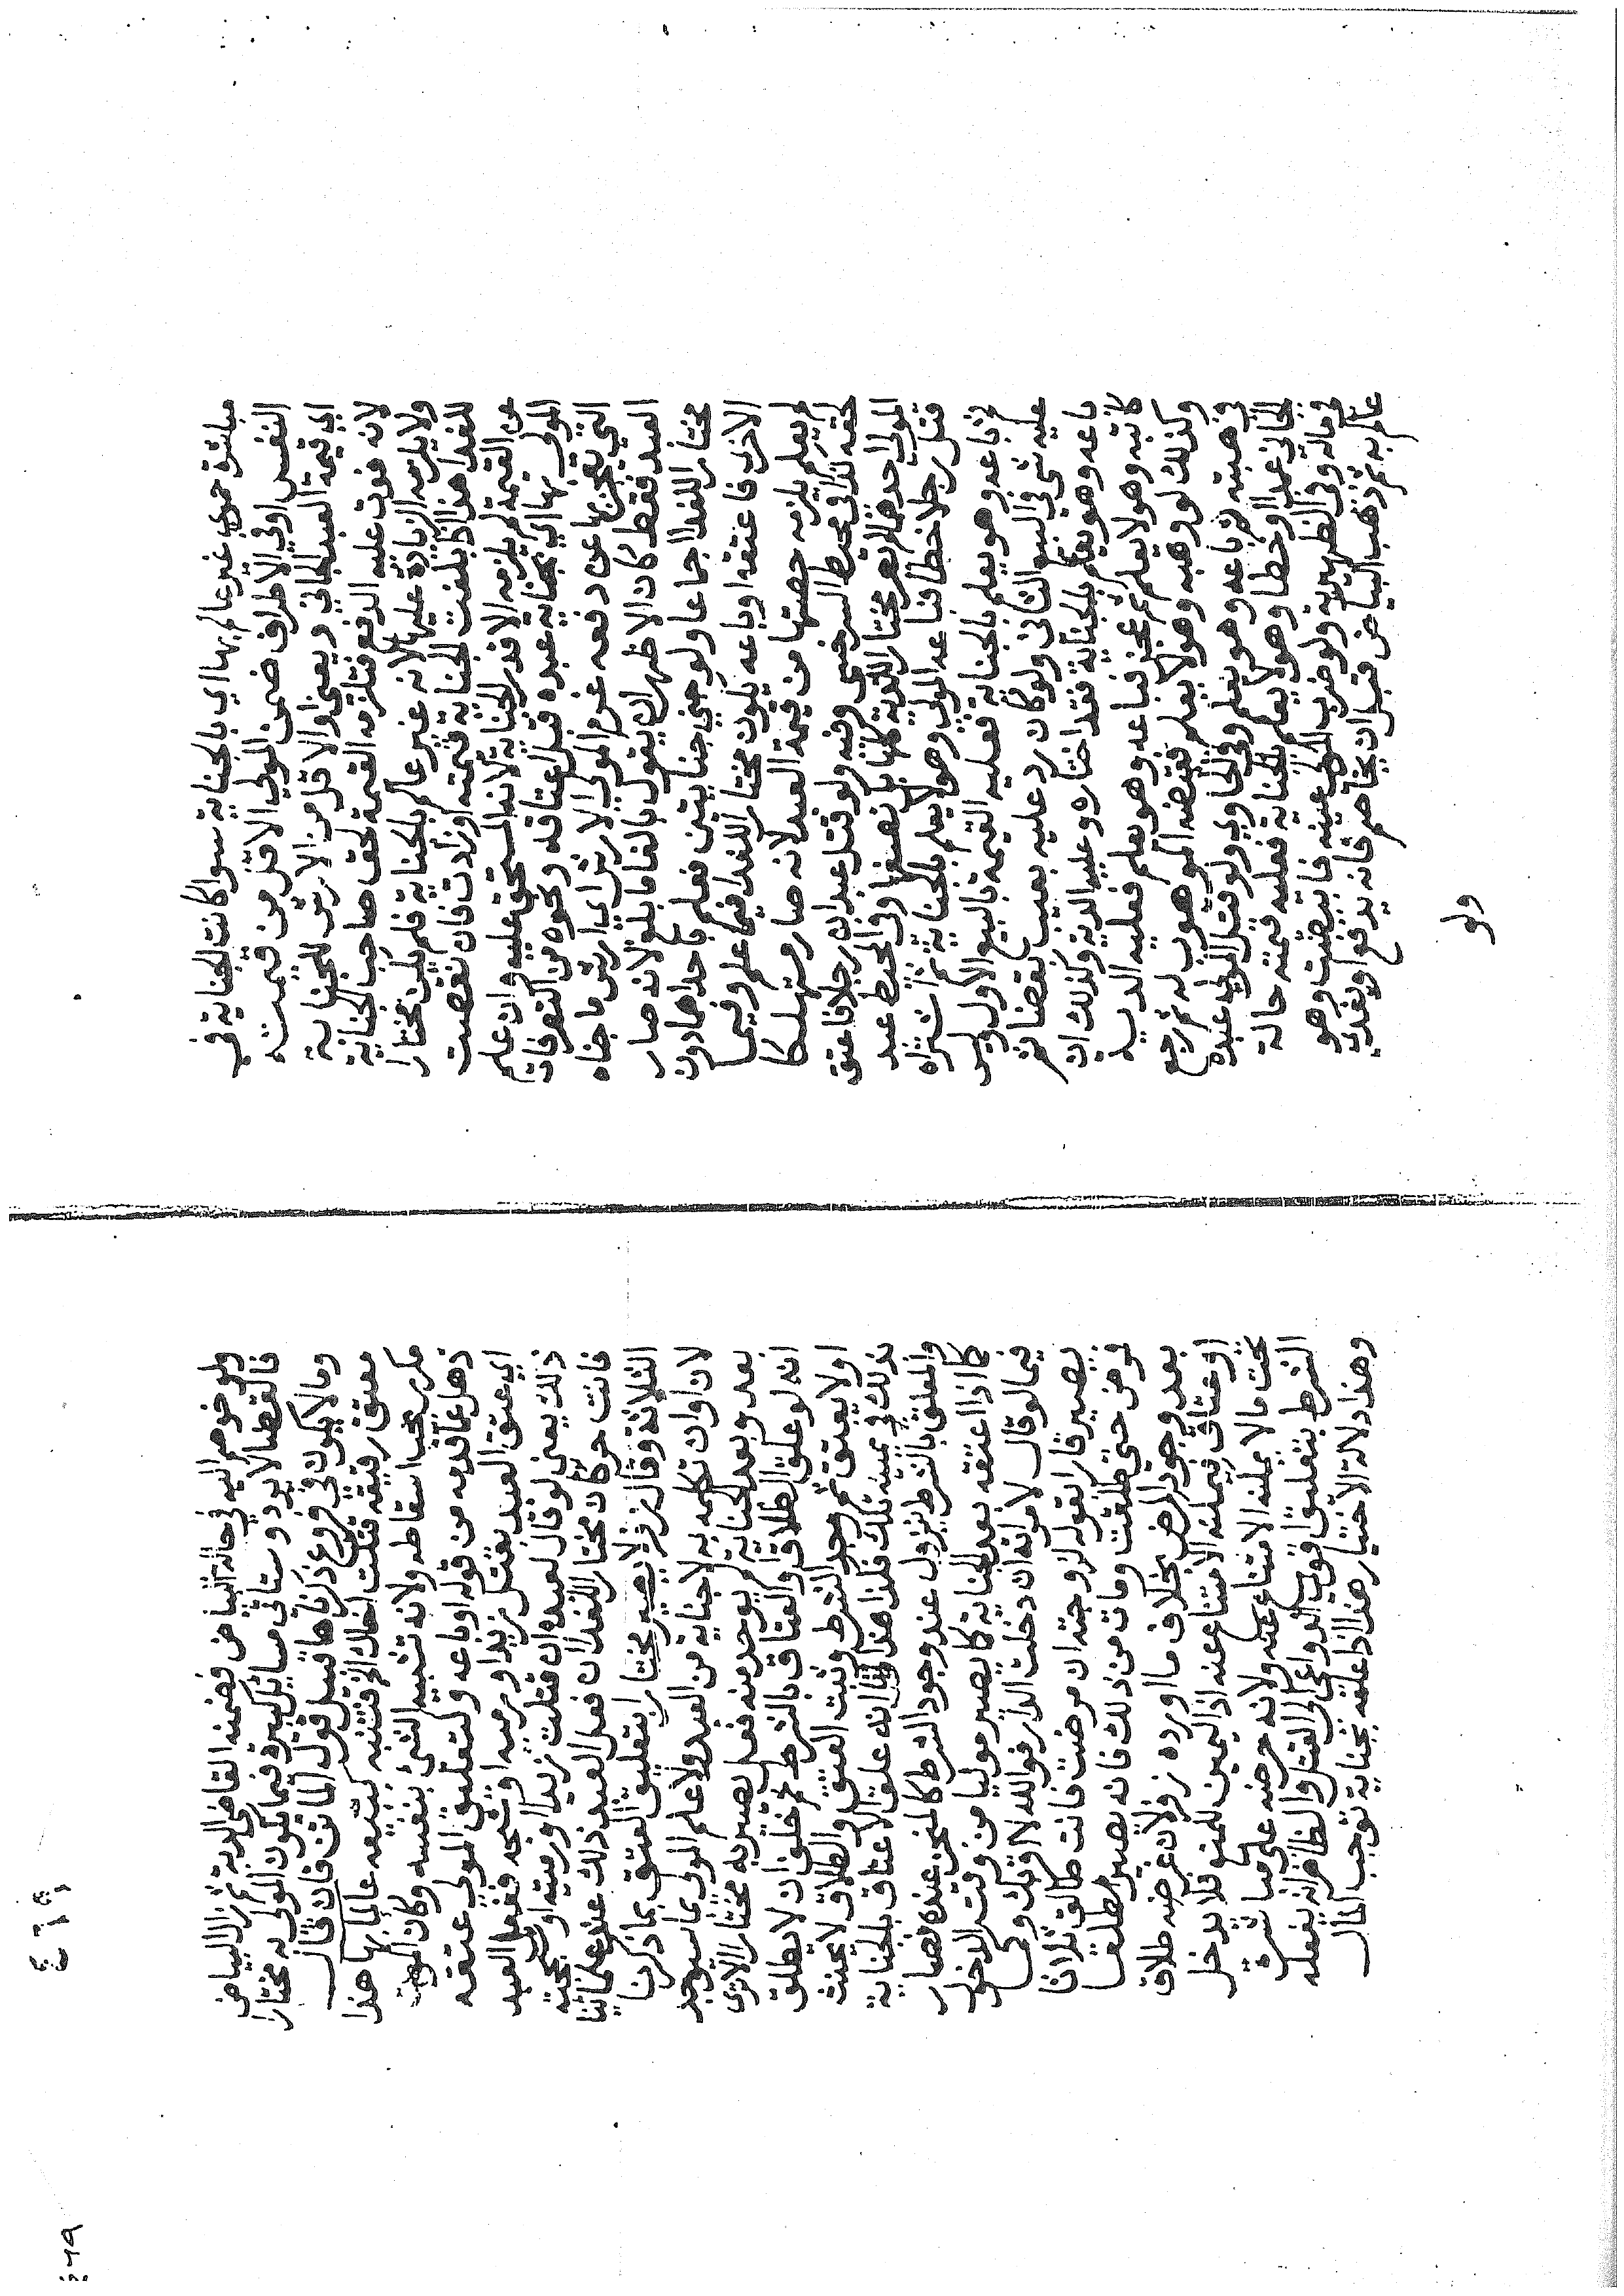 مباشرة حموي غير عالم بها اي بالجناية سوا كانت الجناية في
النفس او في الاطراف ضمن المولي الاقل من قيمته
اي قيمة العبد الجاني ويعني والاقل من الارش للجناية
لانه فوت عليه الدفع فتلزمه القيمة لحق صاحب الجناية
ولا يلزمه الزيادة عليها لانه غير عالم بالجناية فلم يكن مختارا
للفدا هذا اذا بلغت الجناية قيمته او زادت فان نقصت
عن القيمة لم يلزمه الا قدر الجناية لانه المستحق عليه وان علم
المولي بها اي بجناية عبده قبل اعتاقه ونحوه من التصرفات
التي يعجز بها عن دفعه غرم المولي الارش اي ارش ما جناه
العبد فقط كان الاظهر ان يقول بالغا ما بلغ لانه صار
مختار للفدا اجماعا ولو جني جنايتين فعلم باحداهما دون
الاخري فاعتقه او باعه يكون مختارا للفدا فيما علم وفيما
لم يعلم يلزمه حصتها من قيمة العبد لانه صار مستهلكا
حقه كذا في محيط السرخسي وفيه ولو قتل عبد ان رجلا فاعتق
المولي احدهما لم يصر مختارا للدية كلها بل نصفها وفي المحيط عبد
قتل رجلا خطا فباعه المولي وهو لا يعلم بالجناية ثم اشتراه
ثم باعه وهو يعلم بالجناية فعليه القيمة بالبيع الاول وليس
عليه شي في البيع الثاني ولو كان رد عليه بعيب بقضا ثم
باعه وهو يعلم بالجناية فقد اختاره وعليه الدية وكذلك ان
كاتبه وهو لا يعلم ثم عجز فباعه وهو يعلم فعليه الدية
وكذلك لو وهبه وهو لا يعلم فقبضه الموهوب له ثم رجع
في هبته ثم باعه وهو يعلم وفي الحاوي ولو قتل المولي عبده
الجاني عمدا او خطا وهو لا يعلم بالجناية فعليه قيمته حالة
في ماله وفي الظهيرية ولو ضرب المولي عينه فابيضت وهو
عالم به ثم ذهب البياض قبل ان يخاصم فانه يدفع او يفدي
ولو
ولو خوصم اليه في حالة البياض فضمنه القاضي الدية ثم زال البياض
فالقضا لا يرد وستاتي مسائل كبيرة فيما يكون المولي به مختارا
وما لا يكون في فروع ذكرناها قبيل قول الماتن فان قال
معتق رقيقه قتلت اخاك الخ فتنبه كبيعه عالما بها هذا
مكرر يجب اسقاطه ولانه تشبيه الشي بنفسه وكان المولي
ذهل عما قدمه من قوله او باعه وكتعليق المولي عتقه
اي عتق العبد بقتل زيد او رميه او شجه ففعل العبد
ذلك يعني لو قال لعبده ان قتلت زيدا او رميته او شججته
فانت حر كان مختارا للفدا ان فعل العبد ذلك عند علمائنا
الثلاثة وقال زفر لا يصير مختارا بتعليق العتق بما ذكرنا
لان اوان تكلمه به لا جناية من العبد ولا علم للمولي بما سيوجد
بعد وبعد الجناية لم يوجد منه فعل يصير به مختارا الا تري
انه لو علق الطلاق والعتاق بالشرط ثم حلف ان لا يطلق
او لا يعتق ثم وجد الشرط وثبت العتق والطلاق لا يحنث
بذلك في يمينه تلك فكذا هذا ولنا انه علق الاعتاق بالجناية
والمعلق بالشرط ينزل عند وجود الشرط كالمنجز عنده فصار
كما اذا اعتقه بعد الجناية كما يصير موليا من وقت الدخول
فيما لو قال لامراته ان دخلت الدار فوالله لا اقربك وكما
يصير فارا بقوله لزوجته ان مرضت فانت طالق ثلاثا
فمرض حتي طلقت ومات من ذلك فانه يصير مطلقا
بعد وجود المرض بخلاف ما اورده زفر لان غرضه طلاق
او عتاق يمكنه الامتناع عنه اذ اليمين للمنع فلا يدخل
تحته ما لا يمكنه الامتناع عنه ولانه حرضه علي مباشرة
الشرط بتعليق اقوي الدواعي الي القتل والظاهر انه يفعله
وهذا دلالة الاختيار هذا اذا علقه بجناية توجب المال